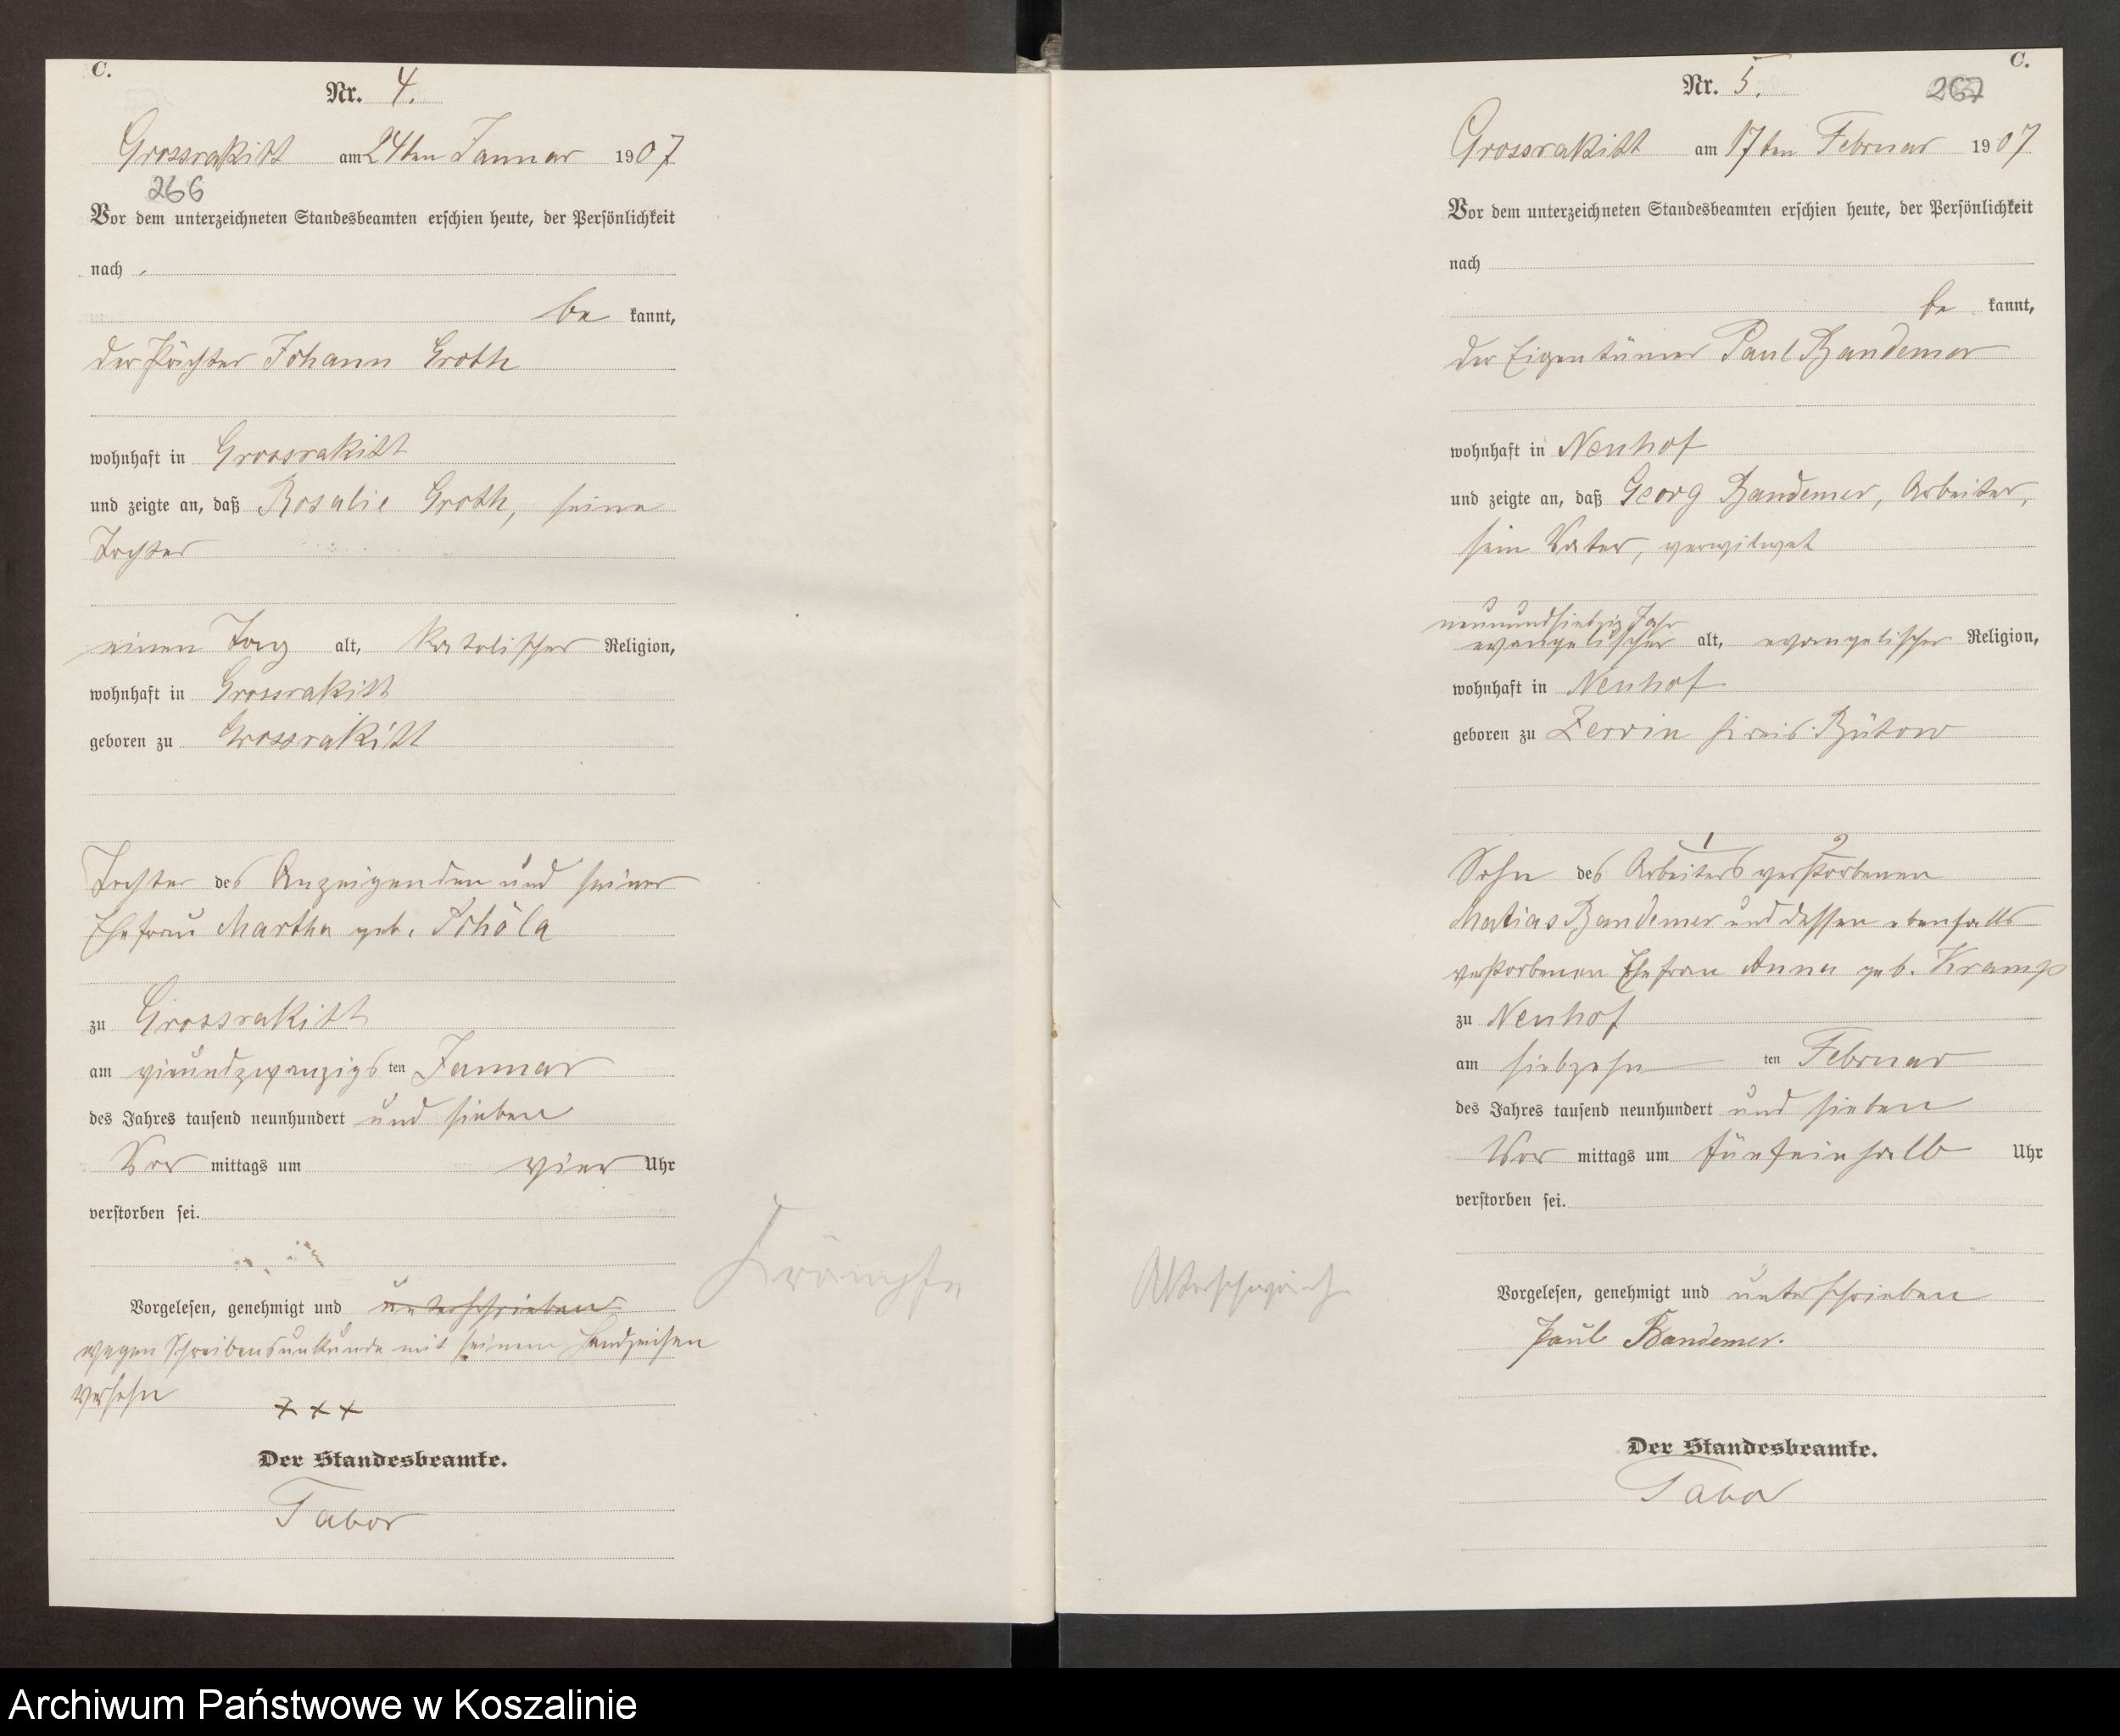 C.
Nr. 4.
Grossrakitt am 24ten Januar 1907
266
Vor dem unterzeichneten Standesbeamten erschien heute, der Persönlichkeit
nach
be kannt,
der Pächter Johann Groth
wohnhaft in Grossrakitt
und zeigte an, daß Rosalie Groth, seine
Tochter
einen Tag alt, katolischer Religion,
wohnhaft in Grossrakitt
geboren zu Grossrakitt
Tochter des Anzeigenden und seiner
Ehefrau Martha geb. Schöla
zu Grossrakitt
am vierundzwanzigs ten Januar
des Jahres tausend neunhundert und sieben
Vor mittags um vier Uhr
verstorben sei.
Krämpfe
Vorgelesen, genehmigt und unterschrieben
wegen Schreibensunkunde mit seinem Handzeichen
versehn
+ + +
Der Standesbeamte.
Tabor
C.
Nr. 5.
267
Grossrakitt am 17ten Februar 1907
Vor dem unterzeichneten Standesbeamten erschien heute, der Persönlichkeit
nach
be kannt,
der Eigentümer Paul Bandemer
wohnhaft in Neuhof
und zeigte an, daß Georg Bandemer, Arbeiter,
sein Vater, verwitwet
neunundsiebzig Jahr
evangelischer alt, evangelischer Religion,
wohnhaft in Neuhof
geboren zu Zerrin Kreis Bütow
1 2
Sohn des Arbeiters verstorbenen
Matias Bandemer und dessen ebenfalls
verstorbenen Ehefrau Anna geb. Kramp
zu Neuhof
am siebzehn ten Februar
des Jahres tausend neunhundert und sieben
Vor mittags um fünfeinhalb Uhr
verstorben sei.
Altersschwäch
Vorgelesen, genehmigt und unterschrieben
Paul Bandemer.
Der Standesbeamte.
Tabor
Archiwum Państwowe w Koszalinie